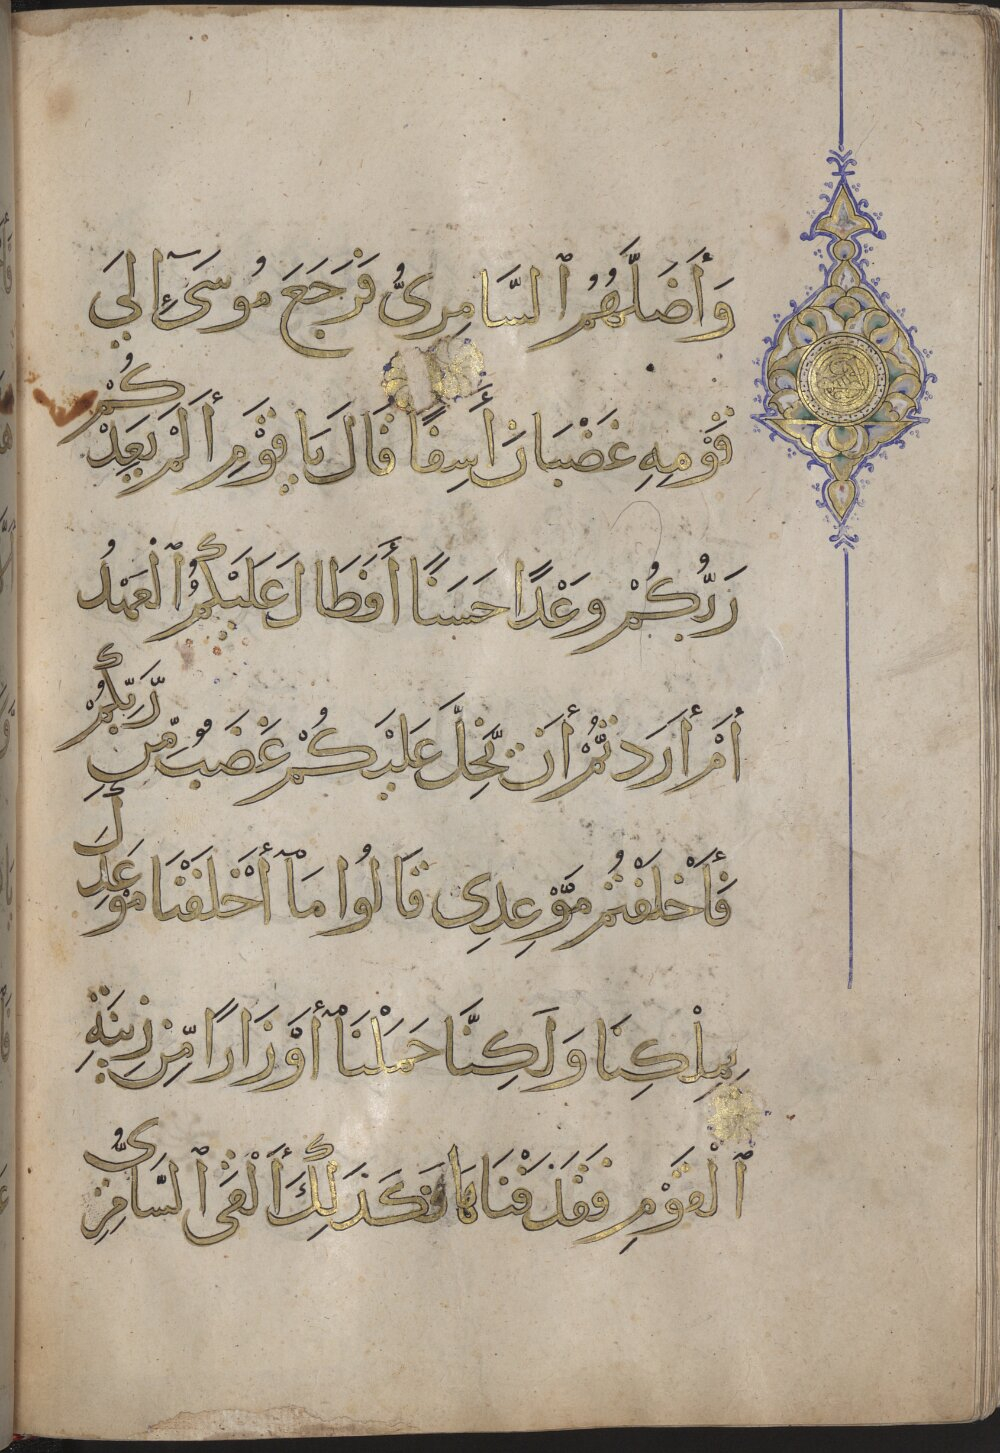 وَأَضَلَّهُمُ ٱلسَّامِرِيُّ فَرَجَعَ مُوسَىٓ إِلَى
قَوْمِهِ غَضْبَانَ أَسِفًا قَالَ يَا قَوْمِ أَلَمْ يَعِدْكُمْ
رَبُّكُمْ وَعْدًا حَسَنًا أَفَطَالَ عَلَيْكُمُ ٱلْعَهْدُ
أَمْ أَرَدتُّمْ أَن يَّحِلَّ عَلَيْكُمْ غَضَبٌ مِّن رَّبِّكُمْ
فَأَخْلَفْتُم مَّوْعِدِى قَالُوا مَآ أَخْلَفْنَا مَوْعِدَكَ
بِمِلْكِنَا وَلَكِنَّا حَمَلْنَآ أَوْزَارًا مِّن زِينَةِ
ٱلْقَوْمِ فَقَذَفْنَاهَا فَكَذَلِكَ أَلْقَى ٱلسَّامِرِيُّ